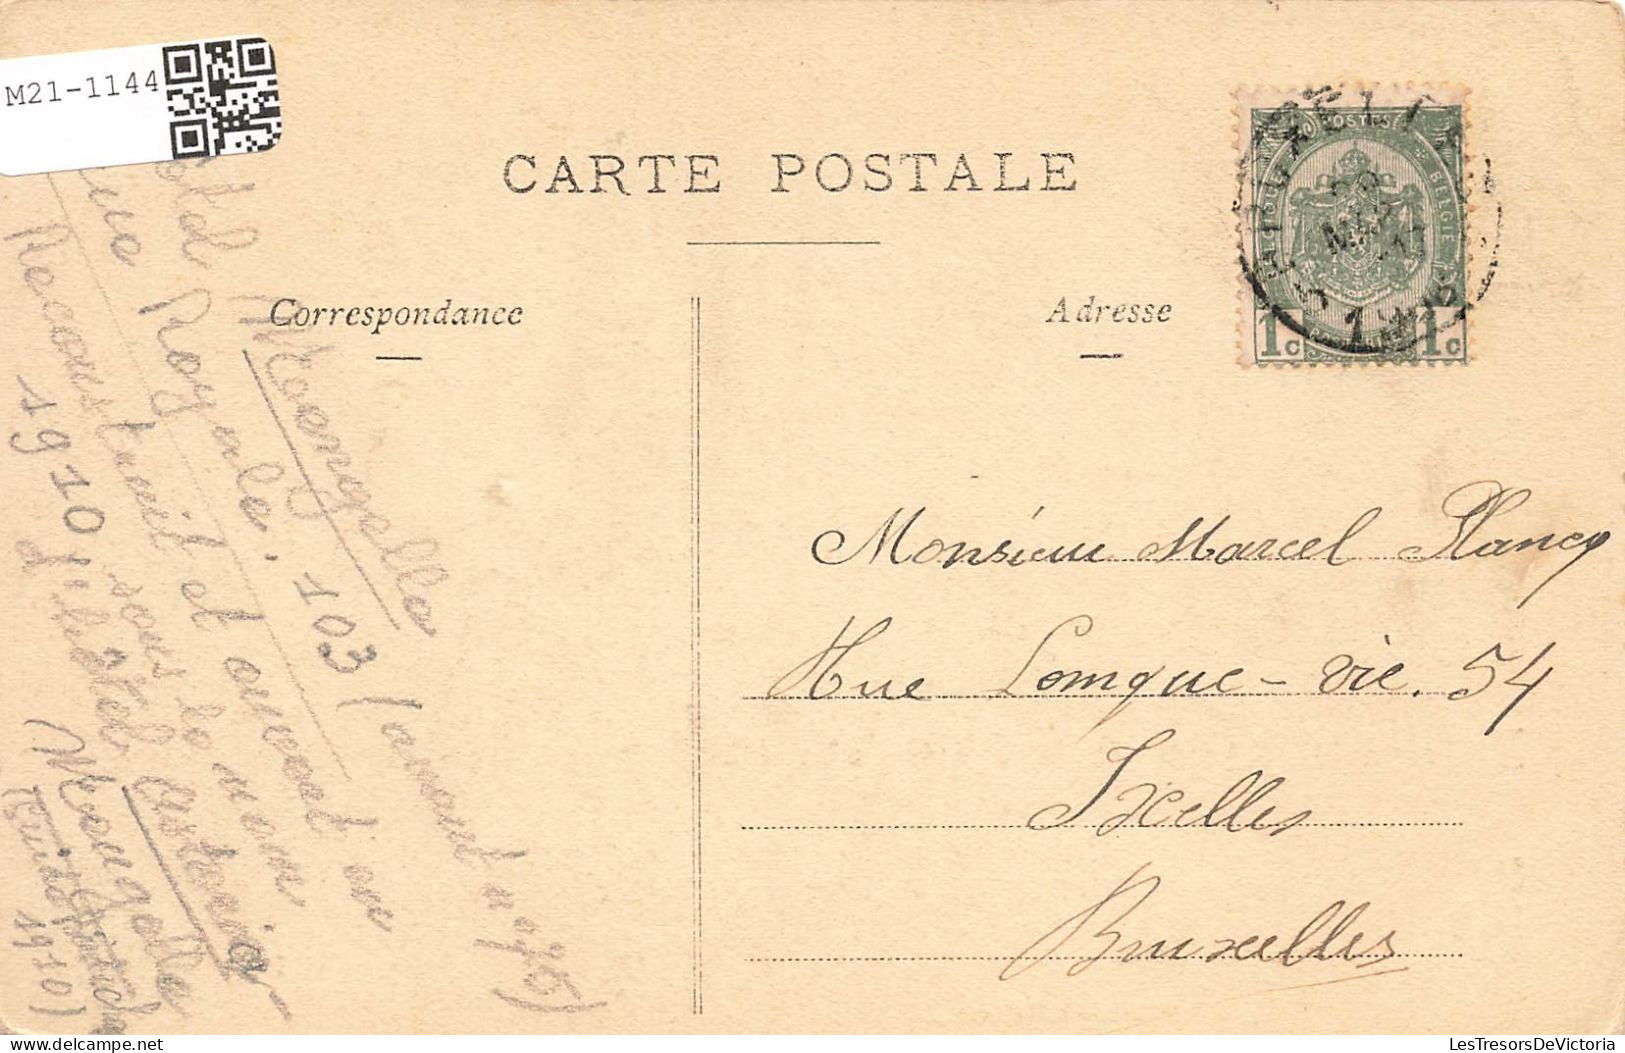 M21-1144
CARTE POSTALE
Correspondance
Adresse
POSTES
BELGIE
1c
1c
Monsieur Marcel Plancq
Rue Longue-vie. 54
Ixelles
Bruxelles
Mengelle
Royale. 103 (avant n° 95)
Reconstruit et ouvert en
1910 sous le nom
d'hôtel Astoria
(Mengelle
1910)
LesTresorsDeVictoria.com
LesTresorsDeVictoria